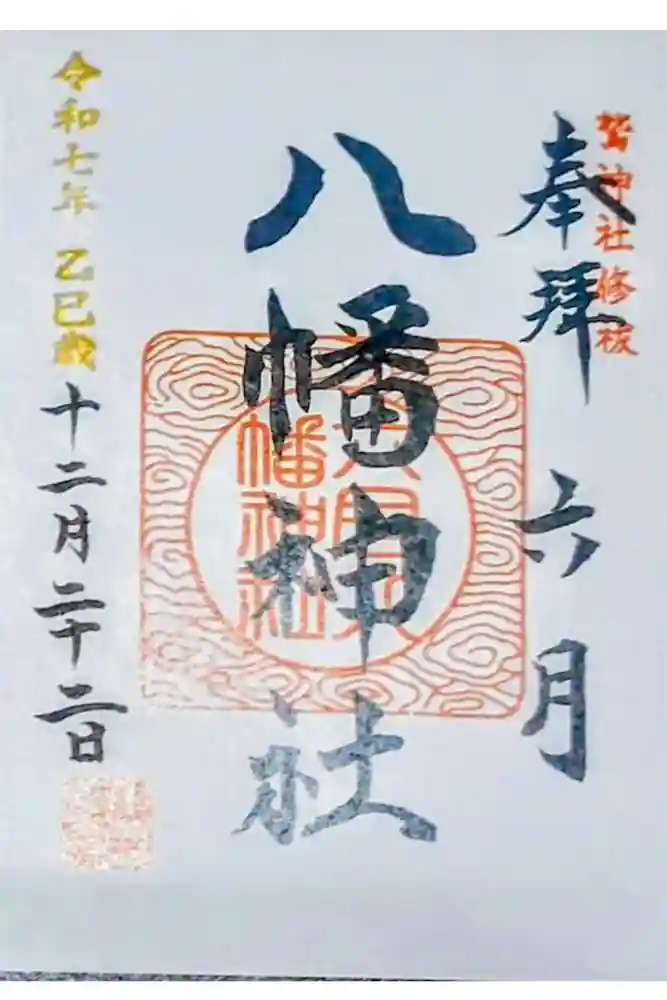 鷲神社修祓
奉拝 六月
八幡神社
幡神社
令和七年 乙巳歳 十二月二十二日